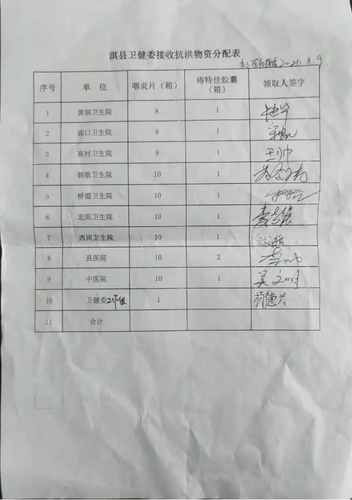 淇县卫健委接收抗洪物资分配表
2021.8.9
序号 单 位 咽炎片（箱） 痔特佳胶囊（箱） 领取人签字
1 黄洞卫生院 8 1
2 庙口卫生院 9 1
3 高村卫生院 10 1 王帅
4 朝歌卫生院 10 1
5 桥盟卫生院 10 1
6 北阳卫生院 10 1
7 西岗卫生院 10 1
8 县医院 10 2
9 中医院 10 1 吴文明
10 卫健委 1
11 合计